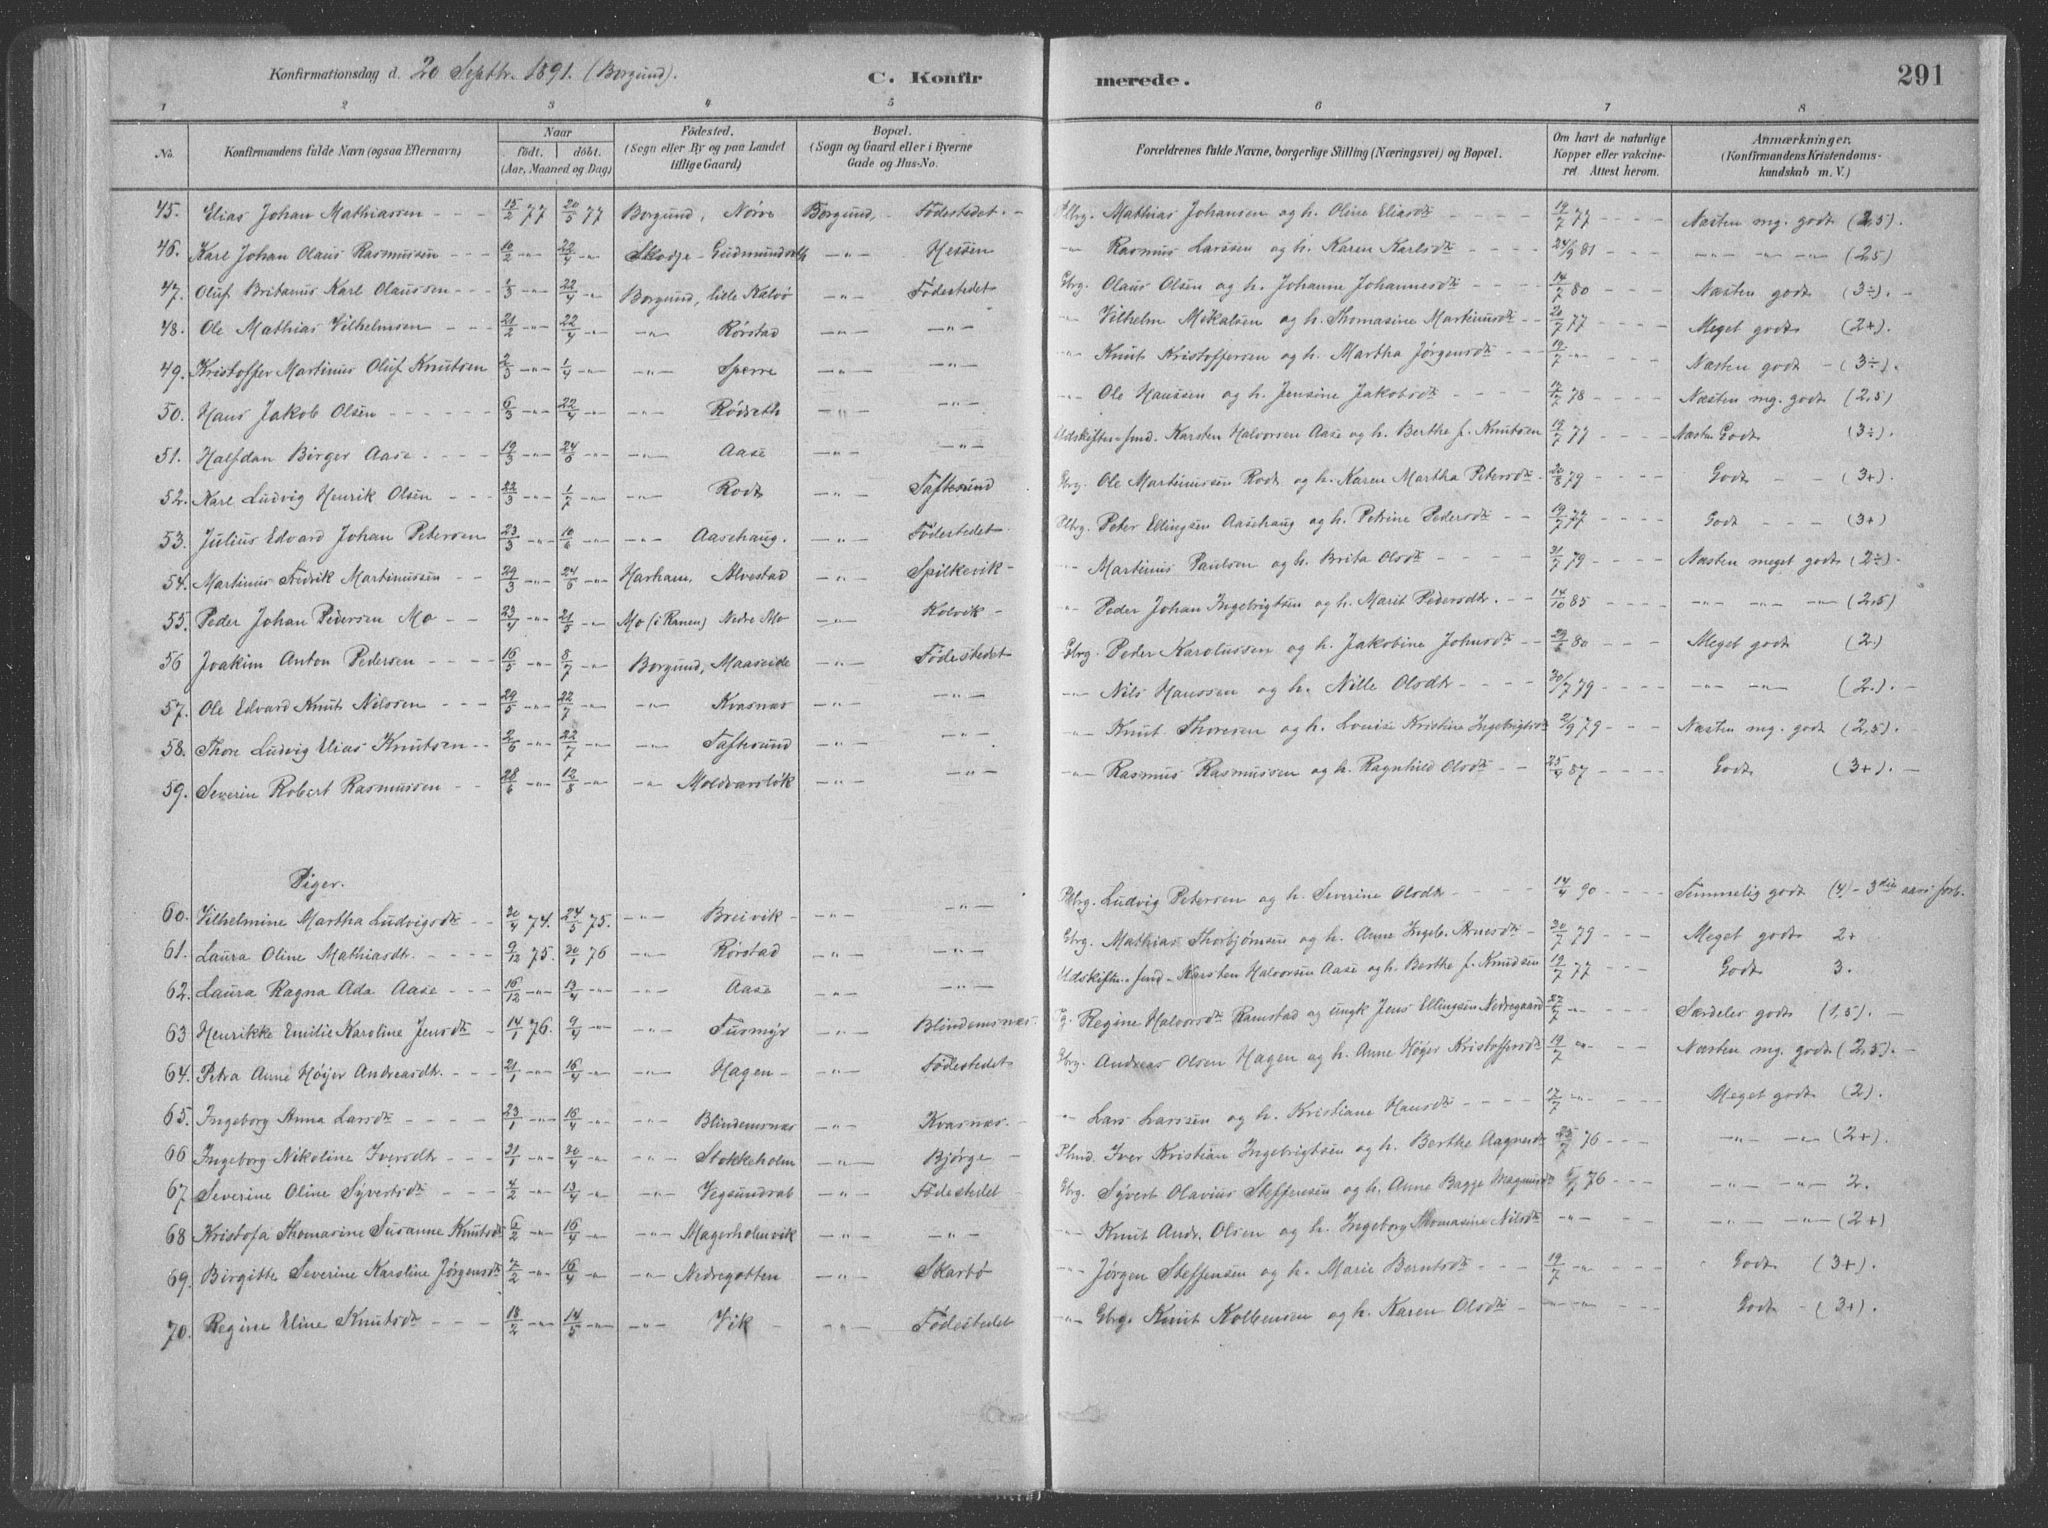 Konfirmationsdag d. 20 Septbr. 1891. (Borgund). C. Konfirmerede. 291
1 2 3 4 5 6 7 8
No. Konfirmandens fulde Navn (ogsaa Efternavn) Naar födt. döbt. (Aar, Maaned og Dag) Födested. (Sogn eller By og paa Landet tillige Gaard) Bopæl. (Sogn og Gaard eller i Byerne Gade og Hus-No. Forældrenes fulde Navne, borgerlige Stilling (Næringsvei) og Bopæl. Om havt de naturlige Kopper eller vakcineret. Attest herom. Anmærkninger. (Konfirmandens Kristendomskundskab m. V.)
45. Elias Johan Mathiassen 15/2 77 20/5 77 Borgund, Nörve Borgund, Födestedet. Plbrg. Mathias Johansen og h. Oline Eliasdtr 19/7 77 Næsten mg. godt (2,5).
46. Karl Johan Olaus Rasmussen 10/2 -"- 22/4 -"- Skodje -"- Hessen -"- Rasmus Larssen og h. Karen Karlsdtr 24/9 81 -"- -"- -"- (2,5)
47. Oluf Britanus Karl Olaussen 1/3 22/4 -"- Borgund, lille Kalvö -"- Födestedet Gbrg. Olaus Olsen og h. Johanne Johannesdtr 14/7 80 Næsten godt (3÷).
48. Ole Mathias Vilhelmsen 21/2 -"- 22/4 -"- -"- Rörstad -"- -"- -"- Vilhelm Mikalsen og h. Thomasine Martinusdtr 20/7 77 Meget godt (2+).
49. Kristoffer Martinus Oluf Knutsen 2/3 -"- 1/4 -"- -"- Sperre -"- -"- -"- Knut Kristoffersen og h. Martha Jörgensdtr 19/7 -"- Næsten godt (3÷)
50. Hans Jakob Olsen 6/3 -"- 22/4 -"- -"- Rödseth -"- -"- -"- Ole Hanssen og h. Jensine Jakobsdtr 12/7 78 Næsten mg. godt (2,5)
51. Halfdan Birger Aase 19/3 -"- 24/6 -"- -"- Aase -"- -"- Udskiftn.-fmd. Karsten Halvorsen Aase og h. Berthe f. Knutsen 19/7 77 Næsten Godt (3÷)
52. Karl Ludvig Henrik Olsen 22/3 -"- 1/7 -"- -"- Rodt -"- Taftesund Gbrg. Ole Martinussen Rodt og h. Karen Martha Petersdtr 20/8 79 Godt (3+)
53. Julius Edvard Johan Petersen 23/3 -"- 10/6 -"- -"- Aasehaug. -"- Födestedet Plbrg. Peter Ellingsen Aasehaug og h. Petrine Pedersdtr 19/7 77 Godt (3+)
54. Martinus Fredrik Martinussen 29/3 -"- 24/6 -"- Harham, Alvestad -"- Spilkevik -"- Martinus Paulsen og h. Brita Olsdtr 31/7 79 Næsten meget godt (2÷)
55. Peder Johan Pedersen Mo 23/4 -"- 21/5 -"- Mo (i Ranen) Nedre Mo -"- Kolvik -"- Peder Johan Ingebrigtsen og h. Marit Pedersdtr. 14/10 85 -"- -"- -"- (2,5)
56 Joakim Anton Pedersen 16/5 -"- 8/7 -"- Borgund, Maaseide -"- Födestedet Gbrg. Peder Karolussen og h. Jakobine Johnsdtr 29/6 80 Meget godt (2)
57. Ole Edvard Knut Nilssen 29/5 -"- 22/7 -"- -"- Kvasnæs -"- -"- -"- Nils Hanssen og h. Nille Olsdtr 30/7 79 -"- -"- (2.).
58. Thore Ludvig Elias Knutsen 2/6 -"- 22/7 -"- -"- Taftesund -"- -"- -"- Knut Thoresen og h. Louise Kristine Ingebrigtsdtr 2/9 79 Næsten mg. godt (2,5).
59. Severin Robert Rasmussen 28/6 -"- 12/8 -"- -"- Moldværsløk -"- -"- -"- Rasmus Rasmussen og h. Ragnhild Olsdtr 25/4 87 Godt (3+).
Piger.
60. Vilhelmine Martha Ludvigsdtr 20/4 74. 24/5 75. -"- Breivik -"- -"- Plbrg. Ludvig Petersen og h. Severine Olsdtr 14/4 90 Temmelig godt (4) - 3die aars forb.
61. Laura Oline Mathiasdtr. 9/12 75. 30/1 76 -"- Rörstad -"- -"- Gbrg. Mathias Thorbjörnsen og h. Anne Ingeb. Arnesdtr 30/7 79 Meget godt 2+
62. Laura Ragna Ada Aase 16/12 -"- 13/4 -"- -"- Aase -"- -"- Udskiftn.-fmd. Karsten Halvorsen Aase og h. Berthe f. Knudsen 19/7 77 Godt 3.
63 Henrikke Emilie Karoline Jensdtr 14/1 76. 9/4 -"- -"- Tusmyr -"- Blindemsnæs. Regine Halvorsdtr Ramstad og ungk Jens Ellingsen Nedregaard 27/7 -"- Særdeles godt (1,5).
64. Petra Anne Höyer Andreasdtr. 21/1 -"- 16/4 -"- -"- Hagen -"- Födestedet Gbrg. Andreas Olsen Hagen og h. Anne Höyer Kristoffersdtr 19/7 -"- Næsten mg. godt (2,5).
65. Ingeborg Anna Larsdtr 23/1 -"- 16/4 -"- -"- Blindemsnæs -"- Kvasnæs. -"- Lars Larssen og h. Kristiane Hansdtr 17/7 -"- Meget godt (2).
66 Ingeborg Nikoline Iversdtr 31/1 -"- 30/4 -"- -"- Stokkeholm -"- Björge Plmd. Iver Kristian Ingebrigtsen og h. Berthe Aagesdtr 25/7 76 -"- -"- (2+)
67 Severine Oline Syvertsdtr 4/2 -"- 13/4 -"- -"- Vegsundsæt -"- Födestedet Gbrg. Syvert Olavius Steffensen og h. Anne Bagge Magnusdtr 76 -"- -"- 2.
68 Kristofa Thomasine Susanne Knutsdtr 6/2 -"- 16/4 -"- -"- Magerholmvik -"- -"- -"- Knut Andr. Olsen og h. Ingeborg Thomasine Nilsdtr -"- -"- -"- -"- (2+)
69. Birgitte Severine Karoline Jörgensdtr 7/2 -"- 16/4 -"- -"- Nedregotten -"- Skarbö -"- Jörgen Steffensen og h. Marie Berntsdtr 19/7 -"- Godt (3+).
70. Regine Eline Knutsdtr 18/2 -"- 14/5 -"- -"- Vik -"- Födestedet -"- Gbrg. Knut Kolbensen og h. Karen Olsdtr -"- -"- Godt (3+).